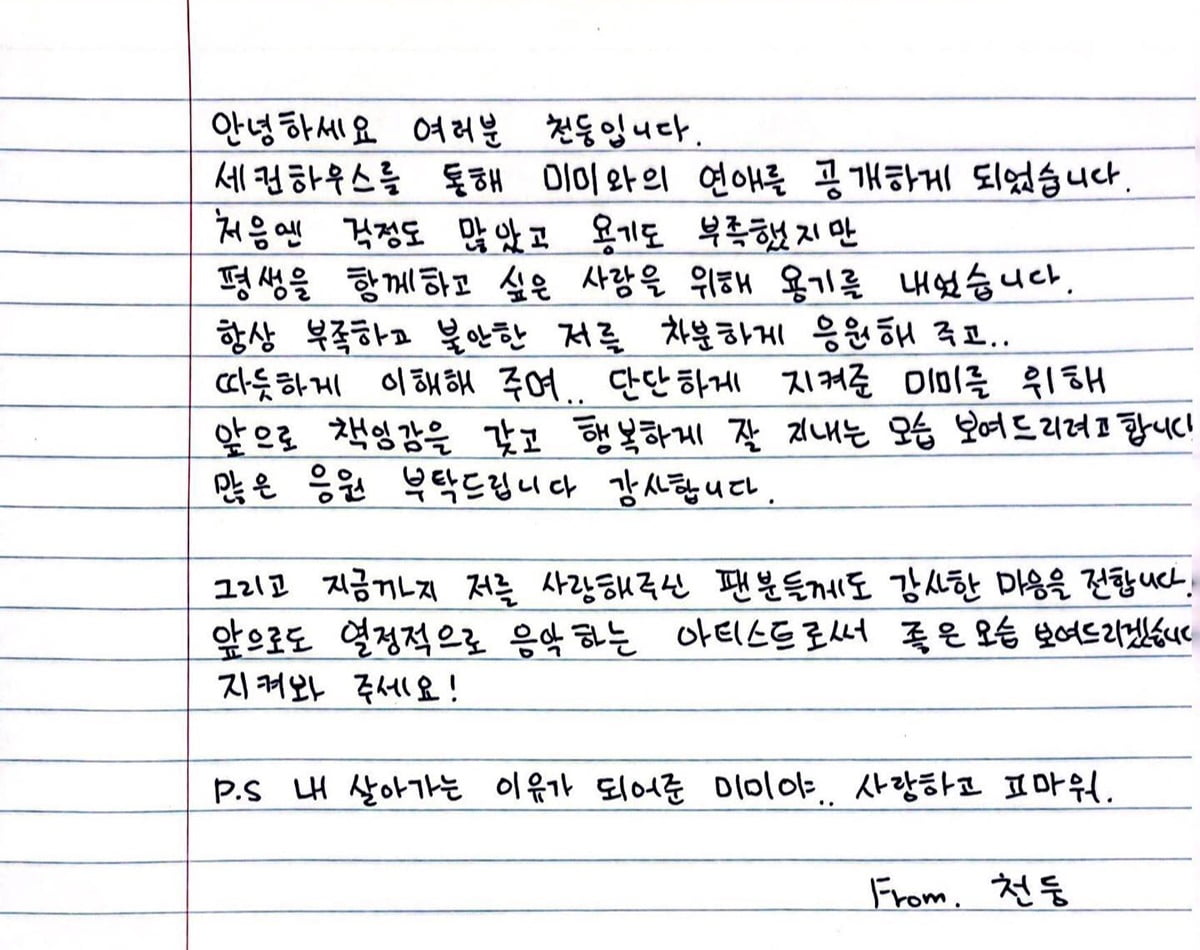 안녕하세요 여러분 천둥입니다.
세컨하우스를 통해 미미와의 연애를 공개하게 되었습니다.
처음엔 걱정도 많았고 용기도 부족했지만
평생을 함께하고 싶은 사람을 위해 용기를 내었습니다.
항상 부족하고 불안한 저를 차분하게 응원해 주고..
따듯하게 이해해 주며.. 단단하게 지켜준 미미를 위해
앞으로 책임감을 갖고 행복하게 잘 지내는 모습 보여드리려고합니다
많은 응원 부탁드립니다 감사합니다.
그리고 지금까지 저를 사랑해주신 팬분들께도 감사한 마음을 전합니다.
앞으로도 열정적으로 음악하는 아티스트로써 좋은 모습 보여드리겠습니다
지켜봐 주세요!
P.S 내 살아가는 이유가 되어준 미미야.. 사랑하고 고마워.
From. 천둥